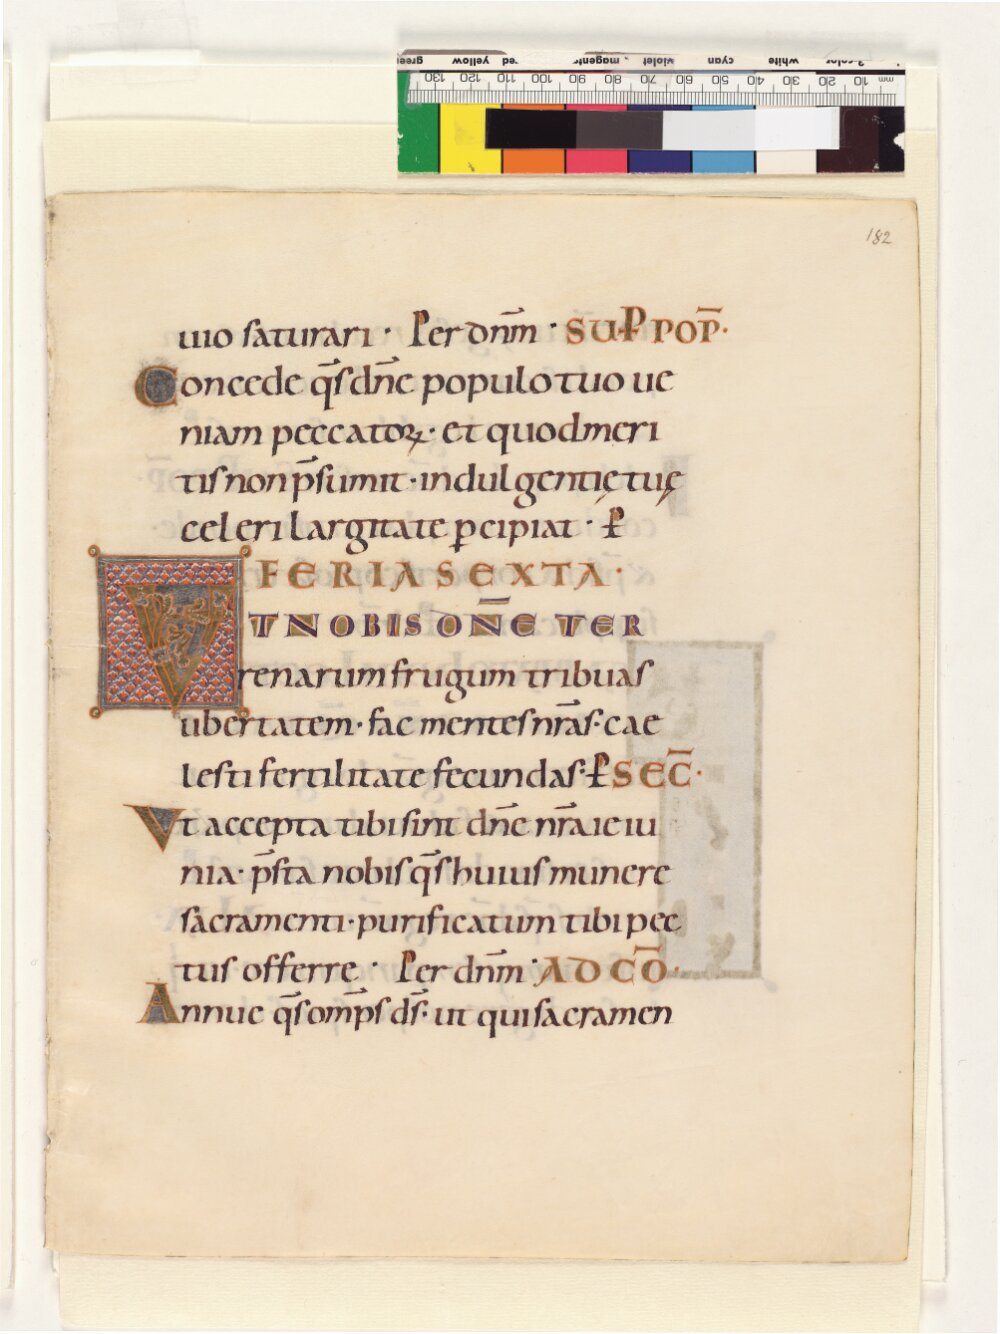 green yellow red magenta violet cyan white 3-color
130 120 110 100 90 80 70 60 50 40 30 20 10 mm
182
uio saturari · Per dn̄m · SU·P POP̄·
Concede q̄s dn̄e populo tuo ue
niam peccatoꝝ· et quod meri
tis non p̄sumit · indulgentię tuę
celeri largitate ꝑcipiat · P̵
FERIA SEXTA ·
VT NOBIS DN̄E TER
renarum frugum tribuas
ubertatem · fac mentes nr̄as · cae
lesti fertilitate fecundas · P̵ SEC̄·
Vt accepta tibi sint dn̄e nr̄a ieiu
nia · p̄sta nobis q̄s huius munere
sacramenti · purificatum tibi pec
tus offerre · Per dn̄m · AD CŌ·
Annue q̄s omp̄s ds̄ · ut qui sacramen